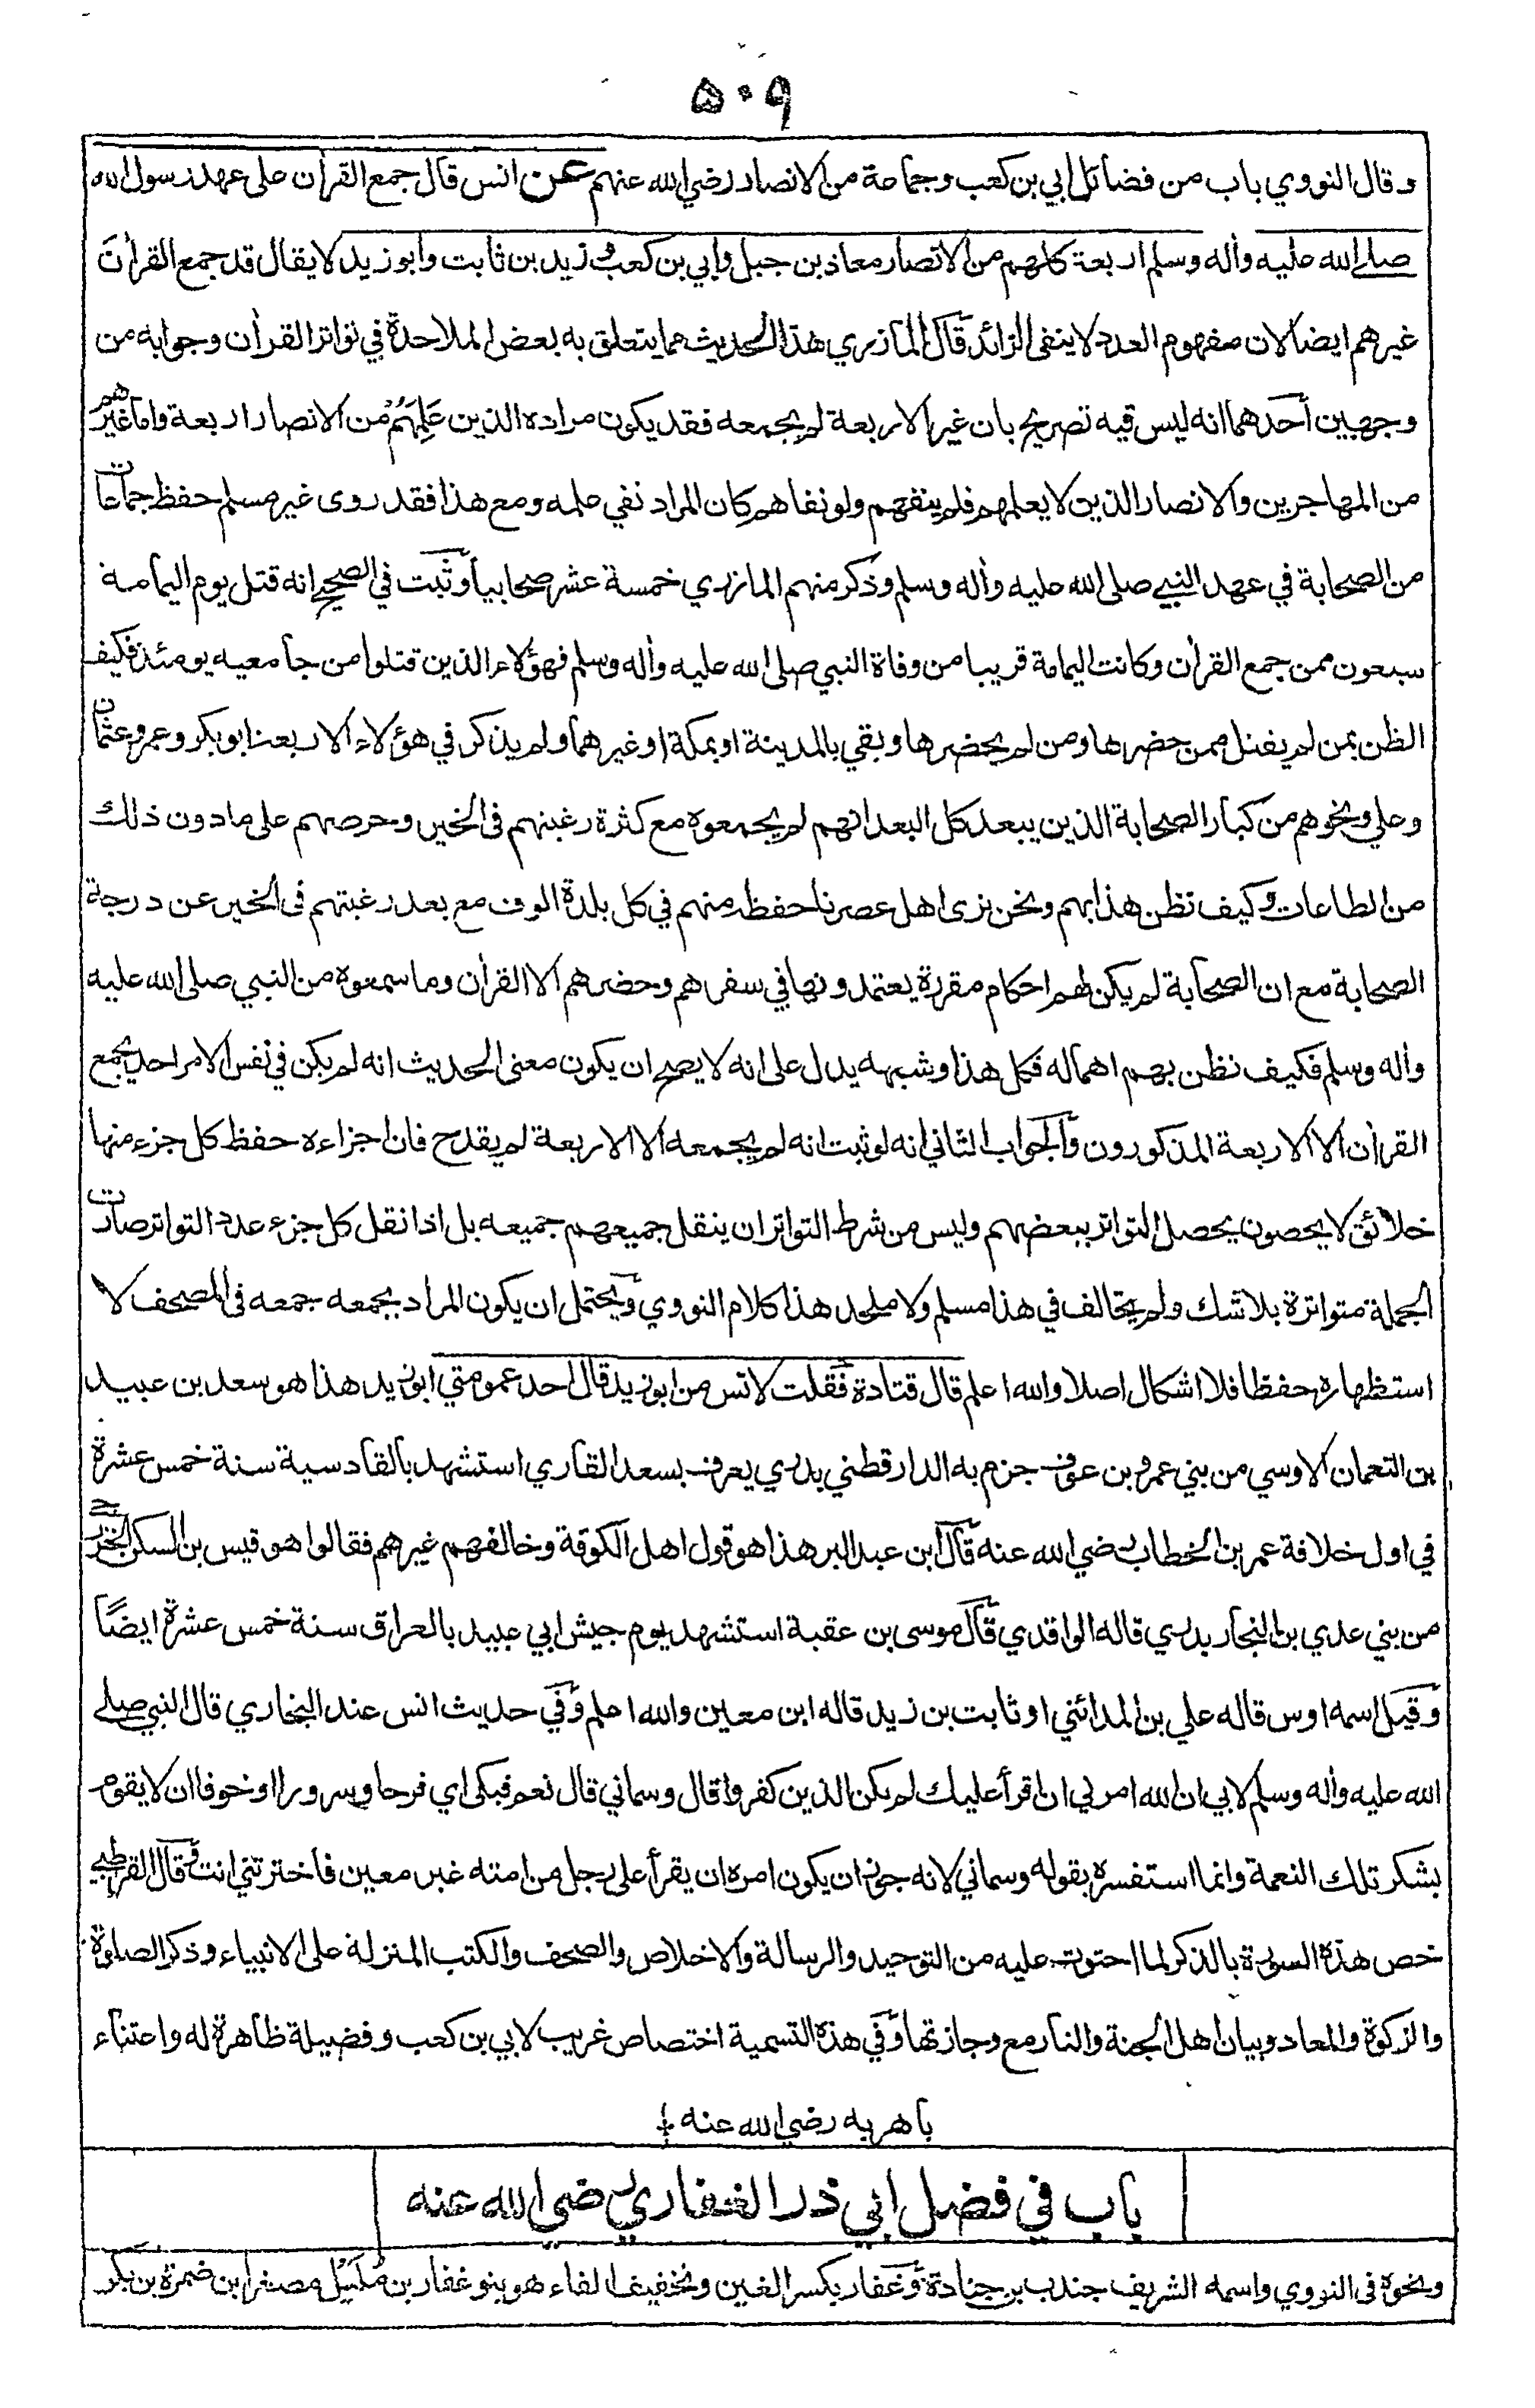 ۵۰۹
وقال النووي باب من فضائل ابي بن كعب وجماعة من الانصار رضي الله عنهم عن انس قال جمع القرأن على عهد رسول الله
صلى الله عليه وأله وسلم اربعة كلهم من الانصار معاذ بن جبل وابي بن كعب وزيد بن ثابت وابو زيد لا يقال قد جمع القرأن
غيرهم ايضا لان مفهوم العدد لا ينفى الزائد قال المازري هذا الحديث مما يتعلق به بعض الملاحدة في تواتر القرأن وجوابه من
وجهين أحدهما انه ليس فيه تصريح بان غير الاربعة لم يجمعه فقد يكون مراده الذين علمهم من الانصار اربعة واما غيرهم
من المهاجرين والانصار الذين لا يعلمهم فلم ينفهم ولو نفاهم كان المراد نفي علمه ومع هذا فقد روى غير مسلم حفظ جماعات
من الصحابة في عهد النبي صلى الله عليه وأله وسلم وذكر منهم المازري خمسة عشر صحابيا وثبت في الصحيح انه قتل يوم اليمامة
سبعون ممن جمع القرأن وكانت اليمامة قريبا من وفاة النبي صلى الله عليه وأله وسلم فهؤلاء الذين قتلوا من جامعيه يومئذ فكيف
الظن بمن لم يقتل ممن حضرها ومن لم يحضرها وبقي بالمدينة او بمكة او غيرهما ولم يذكر في هؤلاء الاربعة ابو بكر وعمر وعثمان
وعلي ونحوهم من كبار الصحابة الذين يبعد كل البعد انهم لم يجمعوه مع كثرة رغبتهم في الخير وحرصهم على ما دون ذلك
من الطاعات وكيف نظن هذا بهم ونحن نرى اهل عصرنا حفظه منهم في كل بلدة الوف مع بعد رغبتهم في الخير عن درجة
الصحابة مع ان الصحابة لم يكن لهم احكام مقررة يعتمدونها في سفرهم وحضرهم الا القرأن وما سمعوه من النبي صلى الله عليه
وأله وسلم فكيف نظن بهم اهماله فكل هذا وشبهه يدل على انه لا يصح ان يكون معنى الحديث انه لم يكن في نفس الامر احد يجمع
القرأن الا الاربعة المذكورون والجواب الثاني انه لو ثبت انه لم يجمعه الا الاربعة لم يقدح فان اجزاءه حفظ كل جزء منها
خلائق لا يحصون يحصل التواتر ببعضهم وليس من شرط التواتر ان ينقل جميعهم جميعه بل اذا نقل كل جزء عدد التواتر صارت
الجملة متواترة بلا شك ولم يخالف في هذا مسلم ولا ملحد هذا كلام النووي ويحتمل ان يكون المراد بجمعه جمعه في المصحف لا
استظهاره حفظا فلا اشكال اصلا والله اعلم قال قتادة فقلت لانس من ابو زيد قال احد عمومتي ابو زيد هذا هو سعد بن عبيد
بن النعمان الاوسي من بني عمرو بن عوف جزم به الدارقطني بدري يعرف بسعد القاري استشهد بالقادسية سنة خمس عشرة
في اول خلافة عمر بن الخطاب رضي الله عنه قال ابن عبد البر هذا هو قول اهل الكوفة وخالفهم غيرهم فقالوا هو قيس بن السكن الخزرجي
من بني عدي بن النجار بدري قاله الواقدي قال موسى بن عقبة استشهد يوم جيش ابي عبيد بالعراق سنة خمس عشرة ايضًا
وقيل اسمه اوس قاله علي بن المدائني او ثابت بن زيد قاله ابن معين والله اعلم وفي حديث انس عند البخاري قال النبي صلى
الله عليه وأله وسلم لابي ان الله امرني ان اقرأ عليك لم يكن الذين كفروا قال وسماني قال نعم فبكى اي فرحا وسرورا او خوفا ان لا يقوم
بشكر تلك النعمة وانما استفسره بقوله وسماني لانه جوز ان يكون امره ان يقرأ على رجل من امته غير معين فاخترتني انت وقال القرطبي
خص هذه السورة بالذكر لما احتوت عليه من التوحيد والرسالة والاخلاص والصحف والكتب المنزلة على الانبياء وذكر الصلوة
والزكوة والمعاد وبيان اهل الجنة والنار مع وجازتها وفي هذه التسمية اختصاص غريب لابي بن كعب وفضيلة ظاهرة له واعتناء
باهر به رضي الله عنه
باب في فضل ابي ذر الغفاري رضي الله عنه
ونحوه في النووي واسمه الشريف جندب بن جنادة وغفار بكسر الغين وتخفيف الفاء هو بنو غفار بن مُلَيْل مصغرا بن ضمرة بن بكر